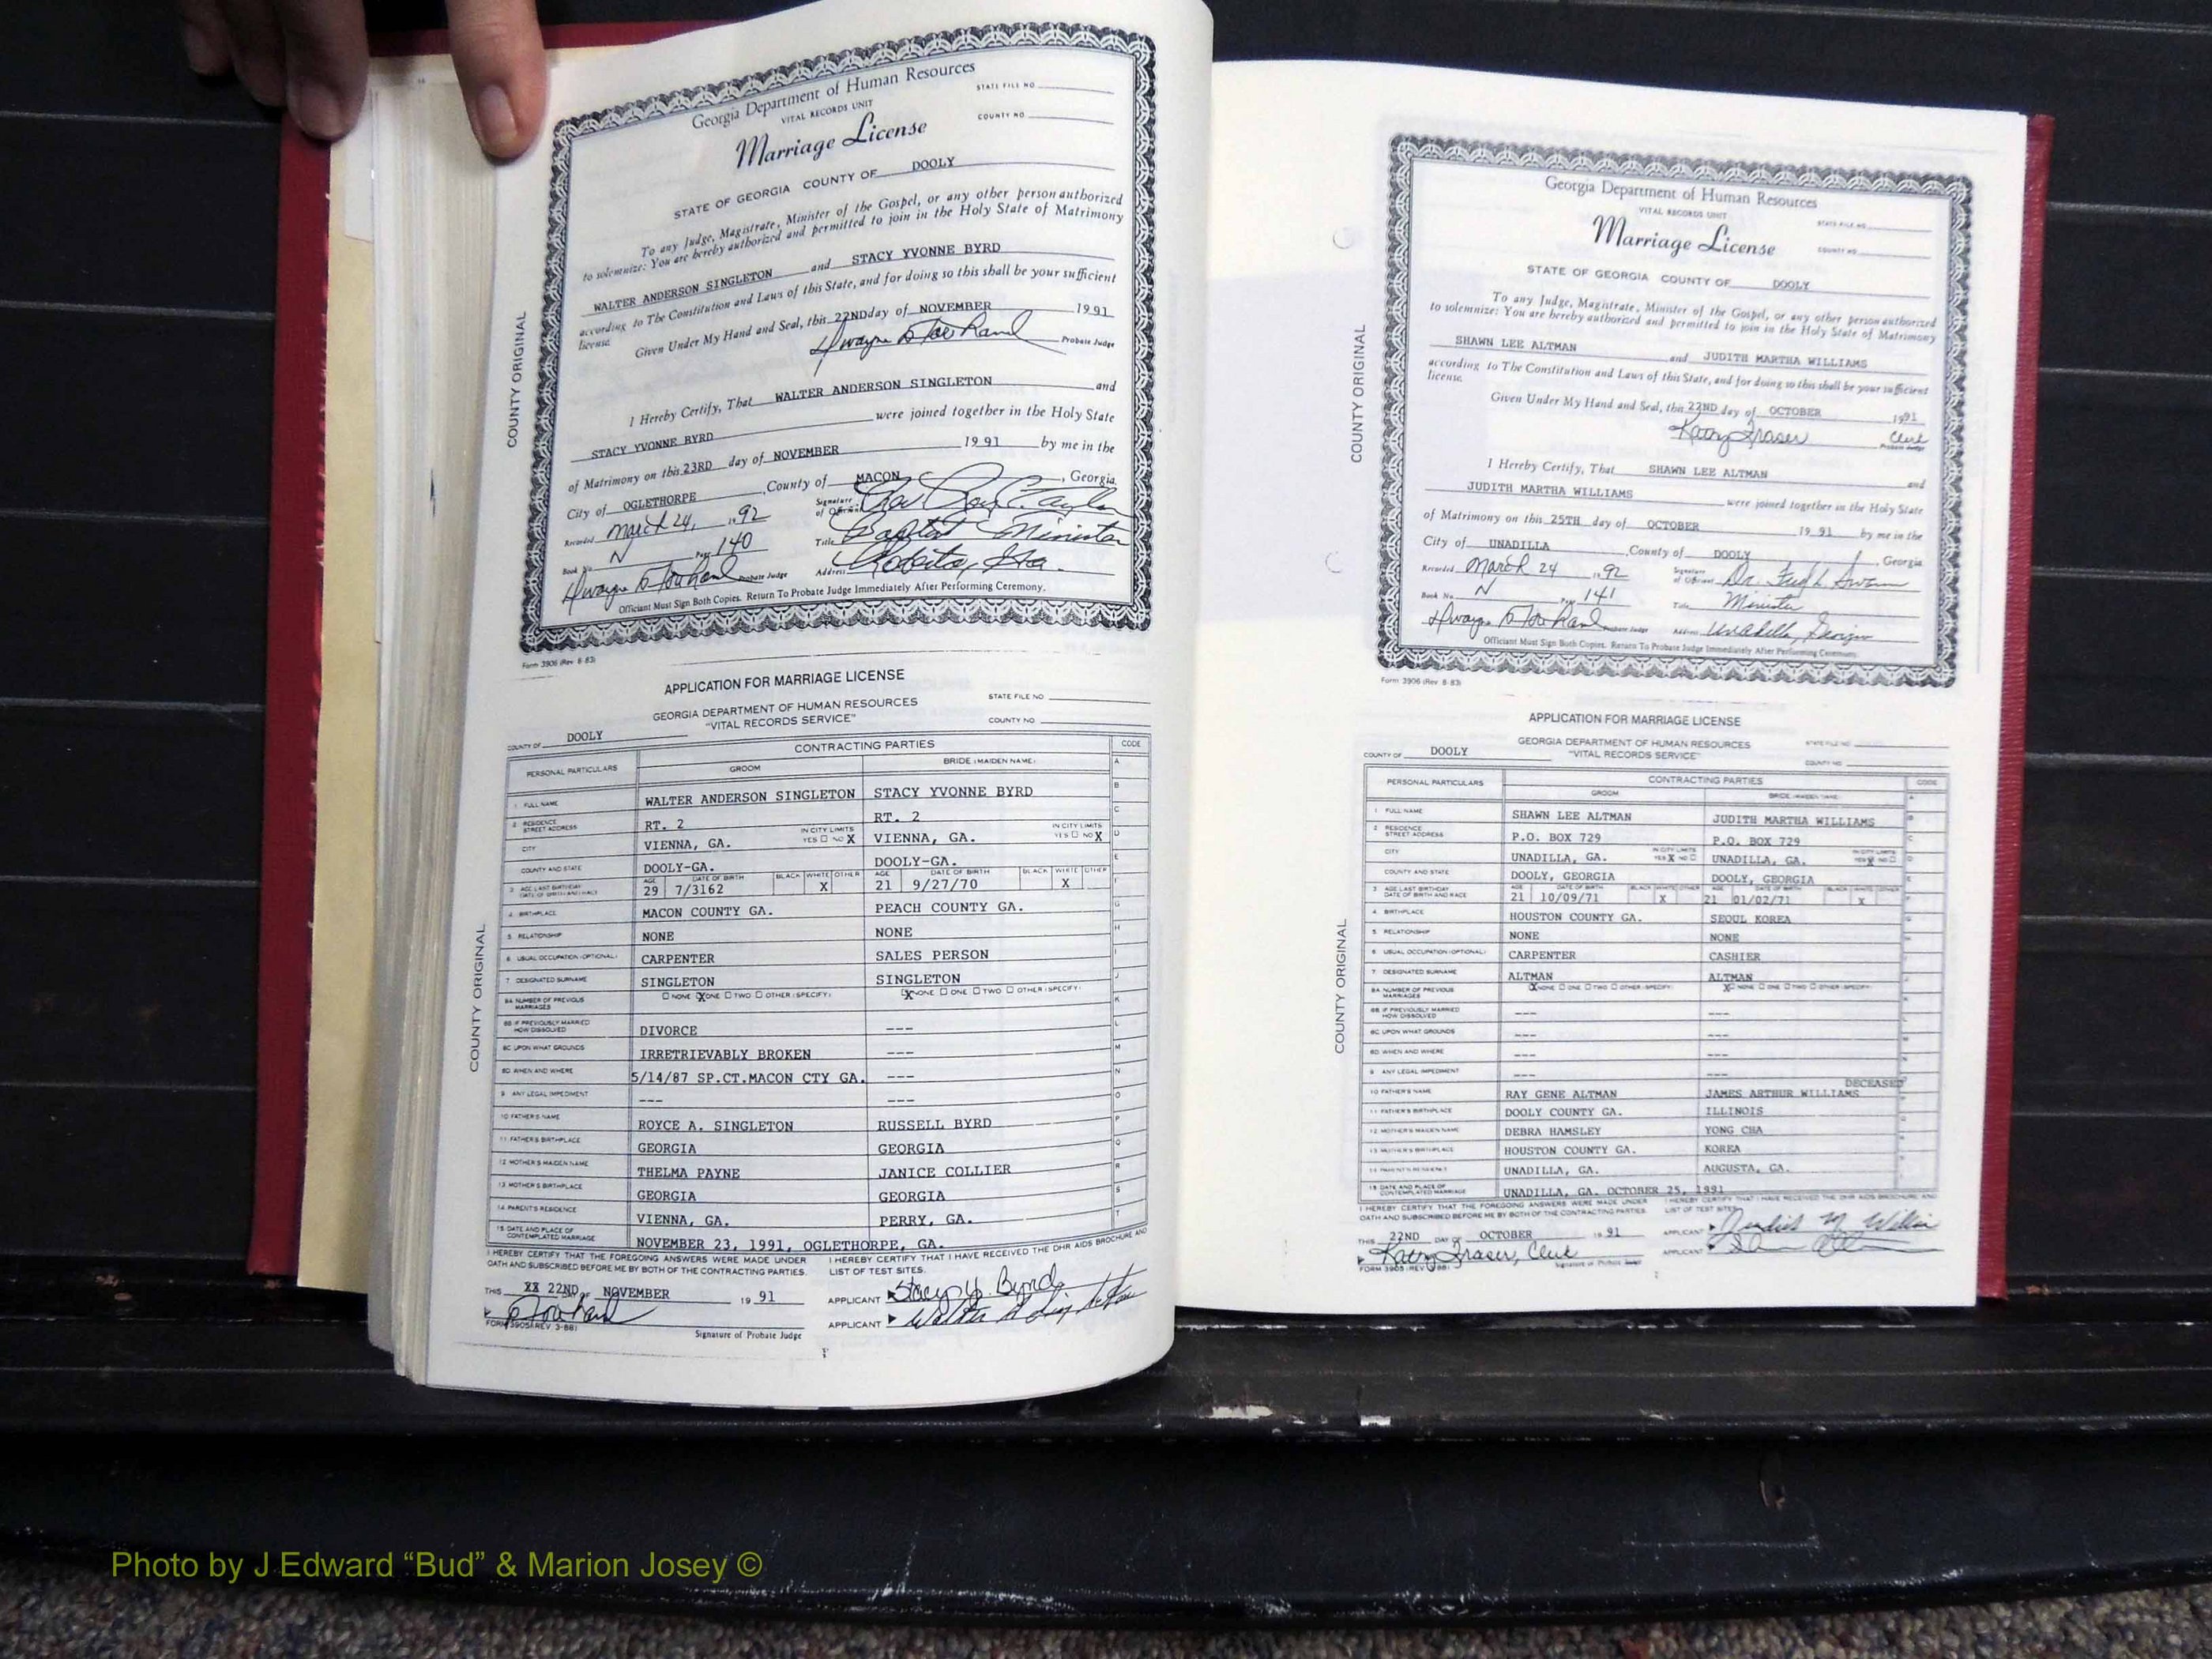 Georgia Department of Human Resources
VITAL RECORDS UNIT
STATE FILE NO
COUNTY NO.
Marriage License
STATE OF GEORGIA COUNTY OF DOOLY
To any Judge, Magistrate, Minister of the Gospel, or any other person authorized
to solemnize: You are hereby authorized and permitted to join in the Holy State of Matrimony
WALTER ANDERSON SINGLETON and STACY YVONNE BYRD
according to The Constitution and Laws of this State, and for doing so this shall be your sufficient
license.
Given Under My Hand and Seal, this 22ND day of NOVEMBER 1991
Probate Judge
I Hereby Certify, That WALTER ANDERSON SINGLETON and
STACY YVONNE BYRD were joined together in the Holy State
of Matrimony on this 23RD day of NOVEMBER 19 91 by me in the
City of OGLETHORPE, County of MACON, Georgia
Recorded March 24, 1992 Signature of Official
Book No. N Page 140 Title Baptist Minister
Probate Judge Address Roberta, Ga.
Officiant Must Sign Both Copies. Return To Probate Judge Immediately After Performing Ceremony.
COUNTY ORIGINAL
Form 3906 (Rev. 8-83)
APPLICATION FOR MARRIAGE LICENSE
GEORGIA DEPARTMENT OF HUMAN RESOURCES
"VITAL RECORDS SERVICE"
STATE FILE NO
COUNTY NO.
COUNTY OF DOOLY
PERSONAL PARTICULARS CONTRACTING PARTIES CODE
GROOM BRIDE (MAIDEN NAME)
1 FULL NAME WALTER ANDERSON SINGLETON STACY YVONNE BYRD
2 RESIDENCE STREET ADDRESS RT. 2 RT. 2
CITY VIENNA, GA. IN CITY LIMITS YES NO X VIENNA, GA. IN CITY LIMITS YES NO X
COUNTY AND STATE DOOLY-GA. DOOLY-GA.
3 AGE LAST BIRTHDAY DATE OF BIRTH AND RACE AGE 29 DATE OF BIRTH 7/3162 BLACK WHITE X OTHER AGE 21 DATE OF BIRTH 9/27/70 BLACK WHITE X OTHER
4 BIRTHPLACE MACON COUNTY GA. PEACH COUNTY GA.
5 RELATIONSHIP NONE NONE
6 USUAL OCCUPATION (OPTIONAL) CARPENTER SALES PERSON
7 DESIGNATED SURNAME SINGLETON SINGLETON
8A NUMBER OF PREVIOUS MARRIAGES ☐ NONE ☒ ONE ☐ TWO ☐ OTHER (SPECIFY) ☒ NONE ☐ ONE ☐ TWO ☐ OTHER (SPECIFY)
8B IF PREVIOUSLY MARRIED HOW DISSOLVED DIVORCE ---
8C UPON WHAT GROUNDS IRRETRIEVABLY BROKEN ---
8D WHEN AND WHERE 5/14/87 SP.CT.MACON CTY GA. ---
9 ANY LEGAL IMPEDIMENT --- ---
10 FATHER'S NAME ROYCE A. SINGLETON RUSSELL BYRD
11 FATHER'S BIRTHPLACE GEORGIA GEORGIA
12 MOTHER'S MAIDEN NAME THELMA PAYNE JANICE COLLIER
13 MOTHER'S BIRTHPLACE GEORGIA GEORGIA
14 PARENT'S RESIDENCE VIENNA, GA. PERRY, GA.
15 DATE AND PLACE OF CONTEMPLATED MARRIAGE NOVEMBER 23, 1991, OGLETHORPE, GA.
I HEREBY CERTIFY THAT THE FOREGOING ANSWERS WERE MADE UNDER
OATH AND SUBSCRIBED BEFORE ME BY BOTH OF THE CONTRACTING PARTIES.
I HEREBY CERTIFY THAT I HAVE RECEIVED THE DHR AIDS BROCHURE AND
LIST OF TEST SITES.
THIS 22ND DAY OF NOVEMBER 19 91
APPLICANT Stacy Y. Byrd
APPLICANT Walter A Singleton
FORM 3905 (REV 3-88)
Signature of Probate Judge
COUNTY ORIGINAL
Georgia Department of Human Resources
VITAL RECORDS UNIT
STATE FILE NO.
COUNTY NO.
Marriage License
STATE OF GEORGIA COUNTY OF DOOLY
To any Judge, Magistrate, Minister of the Gospel, or any other person authorized
to solemnize: You are hereby authorized and permitted to join in the Holy State of Matrimony
SHAWN LEE ALTMAN and JUDITH MARTHA WILLIAMS
according to The Constitution and Laws of this State, and for doing so this shall be your sufficient
license.
Given Under My Hand and Seal, this 22ND day of OCTOBER 1991
Kathy Fraser Clerk
Probate Judge
I Hereby Certify, That SHAWN LEE ALTMAN and
JUDITH MARTHA WILLIAMS were joined together in the Holy State
of Matrimony on this 25TH day of OCTOBER 19 91 by me in the
City of UNADILLA, County of DOOLY, Georgia
Recorded March 24 1992 Signature of Official Dr.
Book No. N Page 141 Title Minister
Probate Judge Address Unadilla, Georgia
Officiant Must Sign Both Copies. Return To Probate Judge Immediately After Performing Ceremony.
COUNTY ORIGINAL
Form 3906 (Rev. 8-83)
APPLICATION FOR MARRIAGE LICENSE
GEORGIA DEPARTMENT OF HUMAN RESOURCES
"VITAL RECORDS SERVICE"
STATE FILE NO
COUNTY NO.
COUNTY OF DOOLY
PERSONAL PARTICULARS CONTRACTING PARTIES CODE
GROOM BRIDE (MAIDEN NAME)
1 FULL NAME SHAWN LEE ALTMAN JUDITH MARTHA WILLIAMS
2 RESIDENCE STREET ADDRESS P.O. BOX 729 P.O. BOX 729
CITY UNADILLA, GA. IN CITY LIMITS YES X NO UNADILLA, GA. IN CITY LIMITS YES X NO
COUNTY AND STATE DOOLY, GEORGIA DOOLY, GEORGIA
3 AGE LAST BIRTHDAY DATE OF BIRTH AND RACE AGE 21 DATE OF BIRTH 10/09/71 BLACK WHITE X OTHER AGE 21 DATE OF BIRTH 01/02/71 BLACK WHITE X OTHER
4 BIRTHPLACE HOUSTON COUNTY GA. SEOUL KOREA
5 RELATIONSHIP NONE NONE
6 USUAL OCCUPATION (OPTIONAL) CARPENTER CASHIER
7 DESIGNATED SURNAME ALTMAN ALTMAN
8A NUMBER OF PREVIOUS MARRIAGES ☒ NONE ☐ ONE ☐ TWO ☐ OTHER (SPECIFY) ☒ NONE ☐ ONE ☐ TWO ☐ OTHER (SPECIFY)
8B IF PREVIOUSLY MARRIED HOW DISSOLVED --- ---
8C UPON WHAT GROUNDS --- ---
8D WHEN AND WHERE --- ---
9 ANY LEGAL IMPEDIMENT --- ---
DECEASED
10 FATHER'S NAME RAY GENE ALTMAN JAMES ARTHUR WILLIAMS
11 FATHER'S BIRTHPLACE DOOLY COUNTY GA. ILLINOIS
12 MOTHER'S MAIDEN NAME DEBRA HAMSLEY YONG CHA
13 MOTHER'S BIRTHPLACE HOUSTON COUNTY GA. KOREA
14 PARENT'S RESIDENCE UNADILLA, GA. AUGUSTA, GA.
15 DATE AND PLACE OF CONTEMPLATED MARRIAGE UNADILLA, GA. OCTOBER 25, 1991
I HEREBY CERTIFY THAT THE FOREGOING ANSWERS WERE MADE UNDER
OATH AND SUBSCRIBED BEFORE ME BY BOTH OF THE CONTRACTING PARTIES.
I HEREBY CERTIFY THAT I HAVE RECEIVED THE DHR AIDS BROCHURE AND
LIST OF TEST SITES.
THIS 22ND DAY OF OCTOBER 19 91
APPLICANT
APPLICANT
Kathy Fraser, Clerk
Signature of Probate Judge
COUNTY ORIGINAL
Photo by J Edward “Bud” & Marion Josey ©